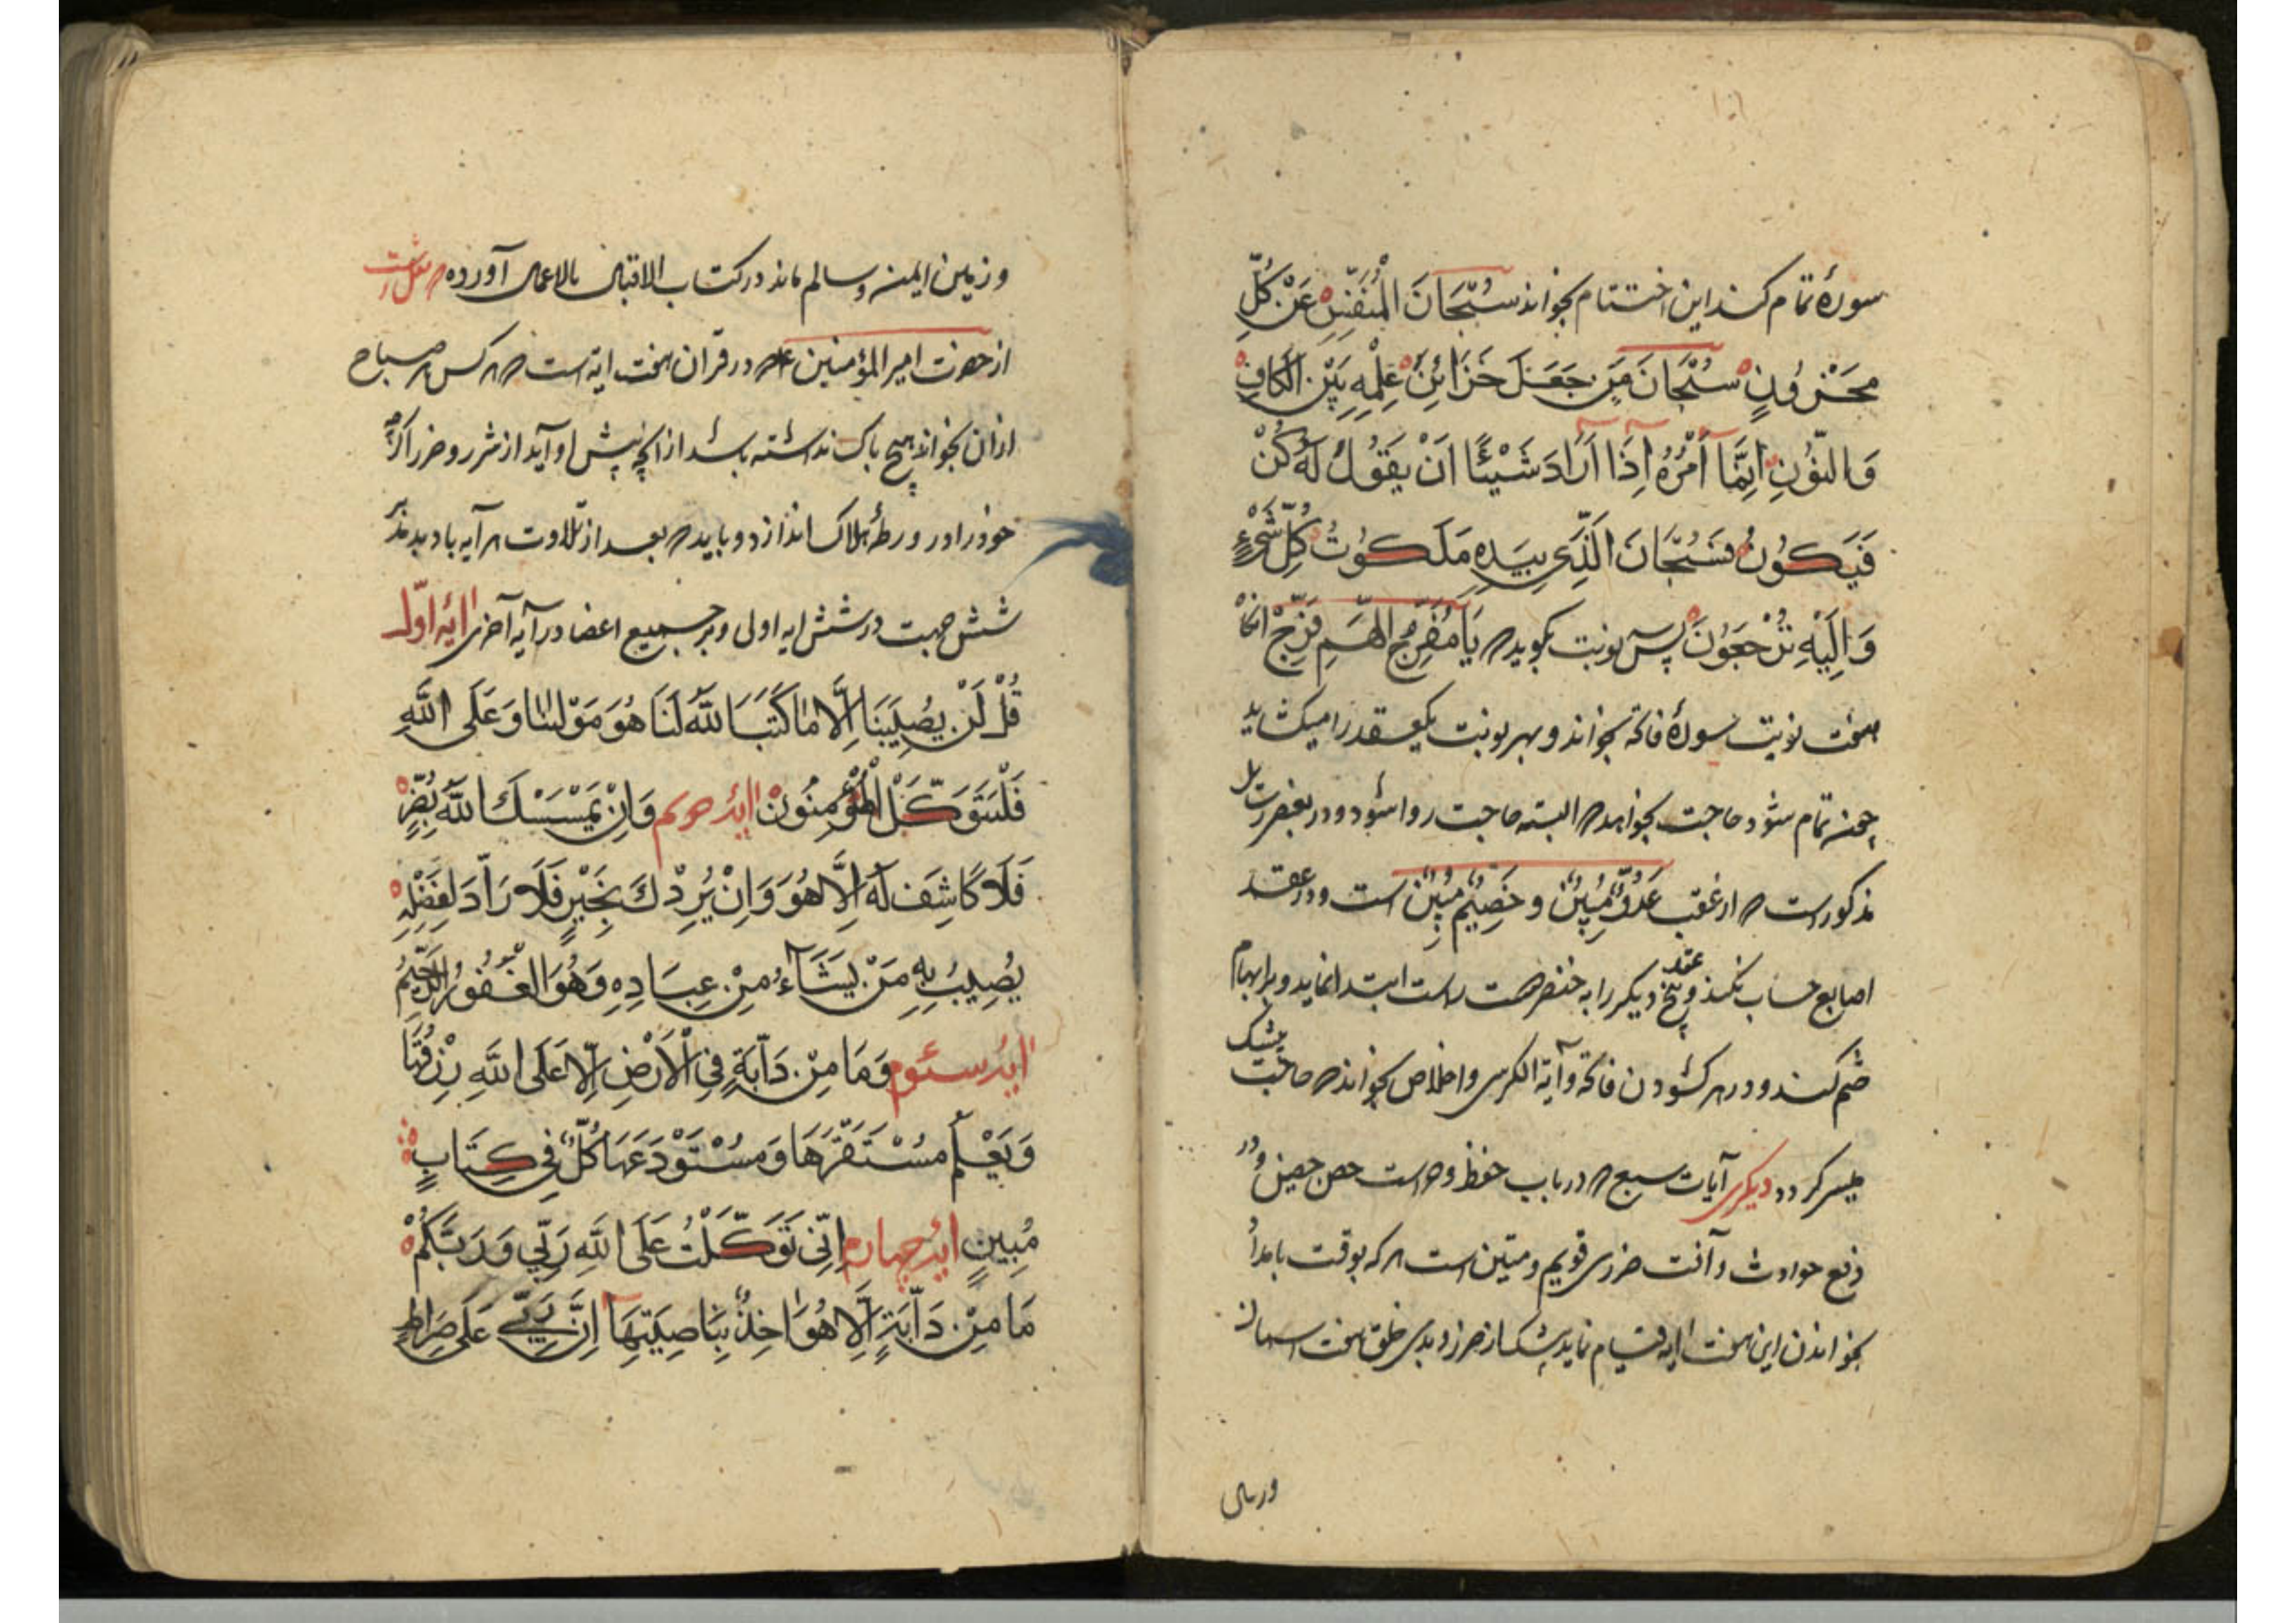 سورهٔ تمام کند این اختتام بخواند سُبْحَانَ الْمُنَفِّسِ عَنْ كُلِّ
مَحْزُونٍ سُبْحَانَ مَنْ جَعَلَ خَزَائِنَ عِلْمِهِ بَيْنَ الْكَافِ
وَالنُّونِ اِنَّمَا اَمْرُهُ اِذَا اَرَادَ شَيْئًا اَنْ يَقُولَ لَهُ كُنْ
فَيَكُونُ فَسُبْحَانَ الَّذِي بِيَدِهِ مَلَكُوتُ كُلِّ شَيْءٍ
وَاِلَيْهِ تُرْجَعُونَ پس نوبت بگوید که یَا مُفَرِّجَ الْهَمِّ فَرِّجْ
هفت نوبت سورهٔ فاتحه بخواند و بهر نوبت یکعقد را میکشاید
چون تمام شود حاجت بخواهد که البته حاجت روا شود و در بعض
مذکور است که از عقب عَدُوٌّ مُبِينٌ و خَصِيمٌ مُبِينٌ است و در عقد
اصابع حساب نکند و پنج عقد دیکر را به خنصر دست راست ابتدا نماید و بر ابهام
ختم کند و در هر کشودن فاتحه و آیة الکرسی و اخلاص بخواند که حاجت بیشک
میسر کردد دیکری آیات سبع که در باب حفظ و حراست حصن حصین و در
دفع حوادث و آفت حرزی قویم و متین است هر که بوقت بامداد
بخواندن این هفت ایه قیام نماید بیشک از ضرر و بدی خلق هفت اسمان
وزمین
و زمین ایمن و سالم ماند در کتاب الاقبال بالاعمال آورده که
از حضرت امیر المؤمنین که در قرآن هفت ایه است که هر کس هر صباح
از ان بخواند هیچ باک نداشته باشد از انچه پیش او آید از شر و ضرر اکرچه
خود را در ورطهٔ هلاک اندازد و باید که بعد از تلاوت هر آیه باد بدمد بر
شش جهت در شش ایه اولی و بر جمیع اعضا در آیه آخری ایه اوّل
قُلْ لَنْ يُصِيبَنَا اِلَّا مَا كَتَبَ اللّٰهُ لَنَا هُوَ مَوْلٰنَا وَعَلَى اللّٰهِ
فَلْيَتَوَكَّلِ الْمُؤْمِنُونَ ایه دویم وَاِنْ يَمْسَسْكَ اللّٰهُ بِضُرٍّ
فَلَا كَاشِفَ لَهُ اِلَّا هُوَ وَاِنْ يُرِدْكَ بِخَيْرٍ فَلَا رَادَّ لِفَضْلِهِ
يُصِيبُ بِهِ مَنْ يَشَآءُ مِنْ عِبَادِهِ وَهُوَ الْغَفُورُ الرَّحِيمُ
ایه سیوم وَمَا مِنْ دَآبَّةٍ فِي الْاَرْضِ اِلَّا عَلَى اللّٰهِ رِزْقُهَا
وَيَعْلَمُ مُسْتَقَرَّهَا وَمُسْتَوْدَعَهَا كُلٌّ فِي كِتَابٍ
مُبِينٍ ایه چهارم اِنِّي تَوَكَّلْتُ عَلَى اللّٰهِ رَبِّي وَرَبِّكُمْ
مَا مِنْ دَآبَّةٍ اِلَّا هُوَ اٰخِذٌ بِنَاصِيَتِهَا اِنَّ رَبِّي عَلَى صِرَاطٍ